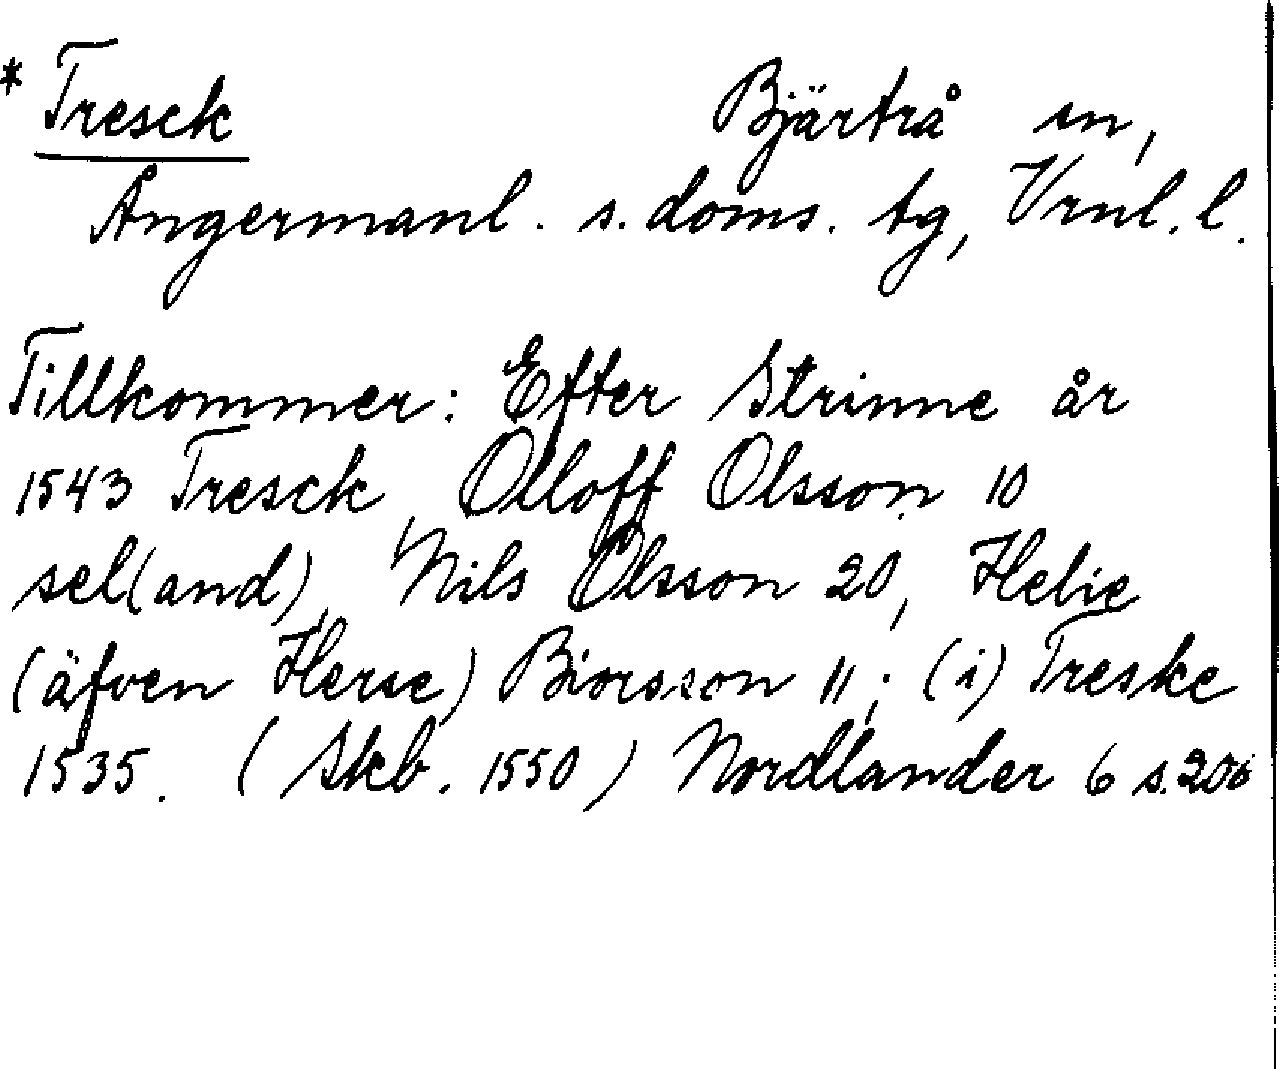 * Tresck Bjärtrå sn,
Ångermanl. s. doms. tg, Vrnl. l.
Tillkommer: Efter Strinne år
1543 Tresck, Olloff Olsson 10
sel(and), Nils Olsson 20, Helie
(äfven Herse) Biorsson 11; (i) Treske
1535. (Skb. 1550) Nordlander 6 s. 206